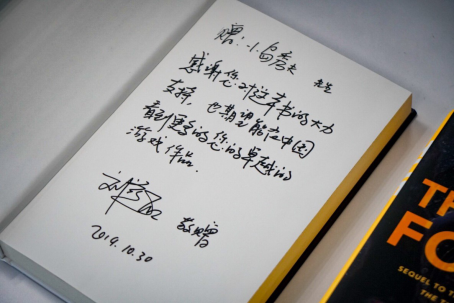 赠:小岛秀夫 先生
感谢您对这本书的大力
支持，也期望能在中国
看到更多的您的卓越的
游戏作品.
刘慈欣 敬赠
2019.10.30
TH
FO
SEQUEL TO T
THE T